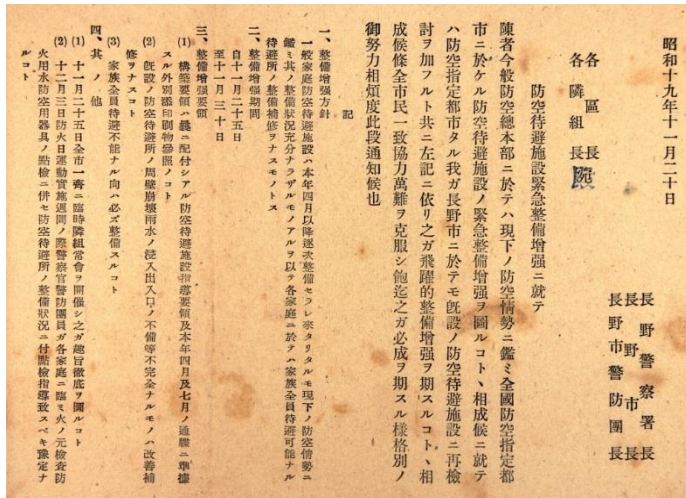 昭和十九年十一月二十日
長野警察署長
長野市長
長野市警防團長
各區長
各隣組長殿
防空待避施設緊急整備增强ニ就テ
陳者今般防空總本部ニ於テハ現下ノ防空情勢ニ鑑ミ全國防空指定都
市ニ於ケル防空待避施設ノ緊急整備增强ヲ圖ルコトヽ相成候ニ就テ
ハ防空指定都市タル我ガ長野市ニ於テモ旣設ノ防空待避施設ニ再檢
討ヲ加フルト共ニ左記ニ依リ之ガ飛躍的整備增强ヲ期スルコトヽ相
成候條全市民一致協力萬難ヲ克服シ飽迄之ガ必成ヲ期スル樣格別ノ
御努力相煩度此段通知候也
記
一、整備增强方針
一般家庭防空待避施設ハ本年四月以降逐次整備セラレ來タリタルモ現下ノ防空情勢ニ
鑑ミ其ノ整備狀況充分ナラザルモノアルヲ以テ各家庭ニ於テハ家族全員待避可能ナル
待避所ノ整備補修ヲナスモノトス
二、整備增强期間
自十一月二十五日
至十一月三十日
三、整備增强要領
(1) 構築要領ハ曩ニ配付シアル防空待避施設指導要領及本年四月及七月ノ通牒ニ準據
スル外別添印刷物參照ノコト
(2) 旣設ノ防空待避所ノ周壁崩壞雨水ノ浸入出入口ノ不備等不完全ナルモノハ改善補
修ヲナスコト
(3) 家族全員待避不能ナル向ハ必ズ整備スルコト
四、其ノ他
(1) 十一月二十五日全市一齊ニ臨時隣組常會ヲ開催シ之ガ趣旨徹底ヲ圖ルコト
(2) 十二月三日防火日運動實施週間ノ際警察官警防團員ガ各家庭ニ臨ミ火ノ元檢査防
火用水防空用器具ノ點檢ニ併セ防空待避所ノ整備狀況ニ付點檢指導致スベキ豫定ナ
ルコト